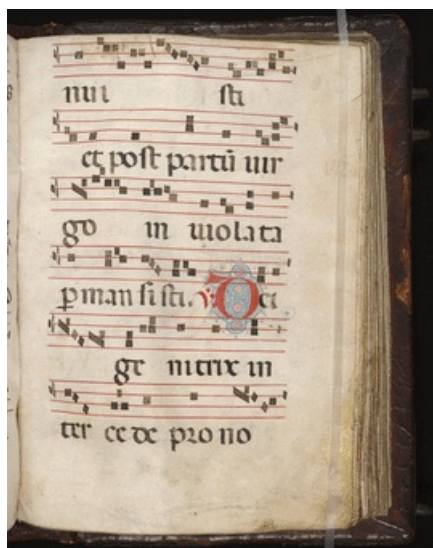 nui sti
et post partū uir
go in uiola ta
ꝑman si sti. ℣ Dei
ge nitrix in
ter ce de pro no